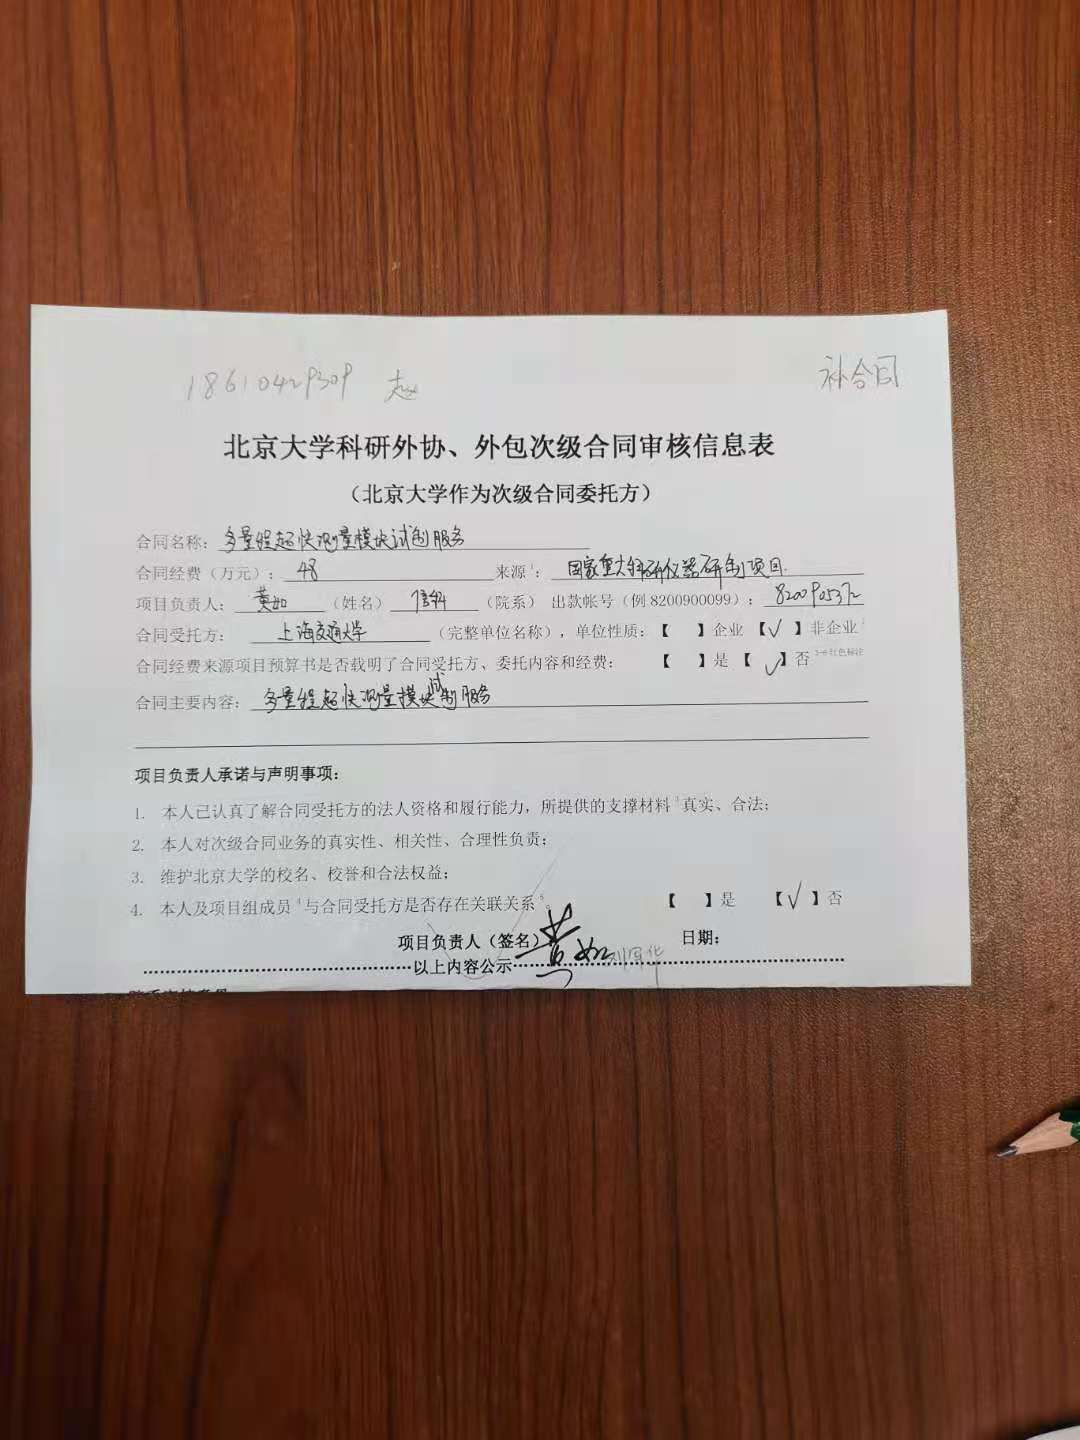 18610429309 赵
补合同
北京大学科研外协、外包次级合同审核信息表
（北京大学作为次级合同委托方）
合同名称：多量程超快测量模块试制服务
合同经费（万元）：48 来源1：国家重大科研仪器研制项目
项目负责人：黄如（姓名）信科（院系）出款帐号（例 8200900099）：8200905372
合同受托方：上海交通大学（完整单位名称），单位性质：【 】企业【√】非企业2
合同经费来源项目预算书是否载明了合同受托方、委托内容和经费：【 】是【√】否
合同主要内容：多量程超快测量模块试制服务
项目负责人承诺与声明事项：
1. 本人已认真了解合同受托方的法人资格和履行能力，所提供的支撑材料3真实、合法；
2. 本人对次级合同业务的真实性、相关性、合理性负责；
3. 维护北京大学的校名、校誉和合法权益；
4. 本人及项目组成员4与合同受托方是否存在关联关系5。【 】是【√】否
项目负责人（签名）黄如 日期：
以上内容公示